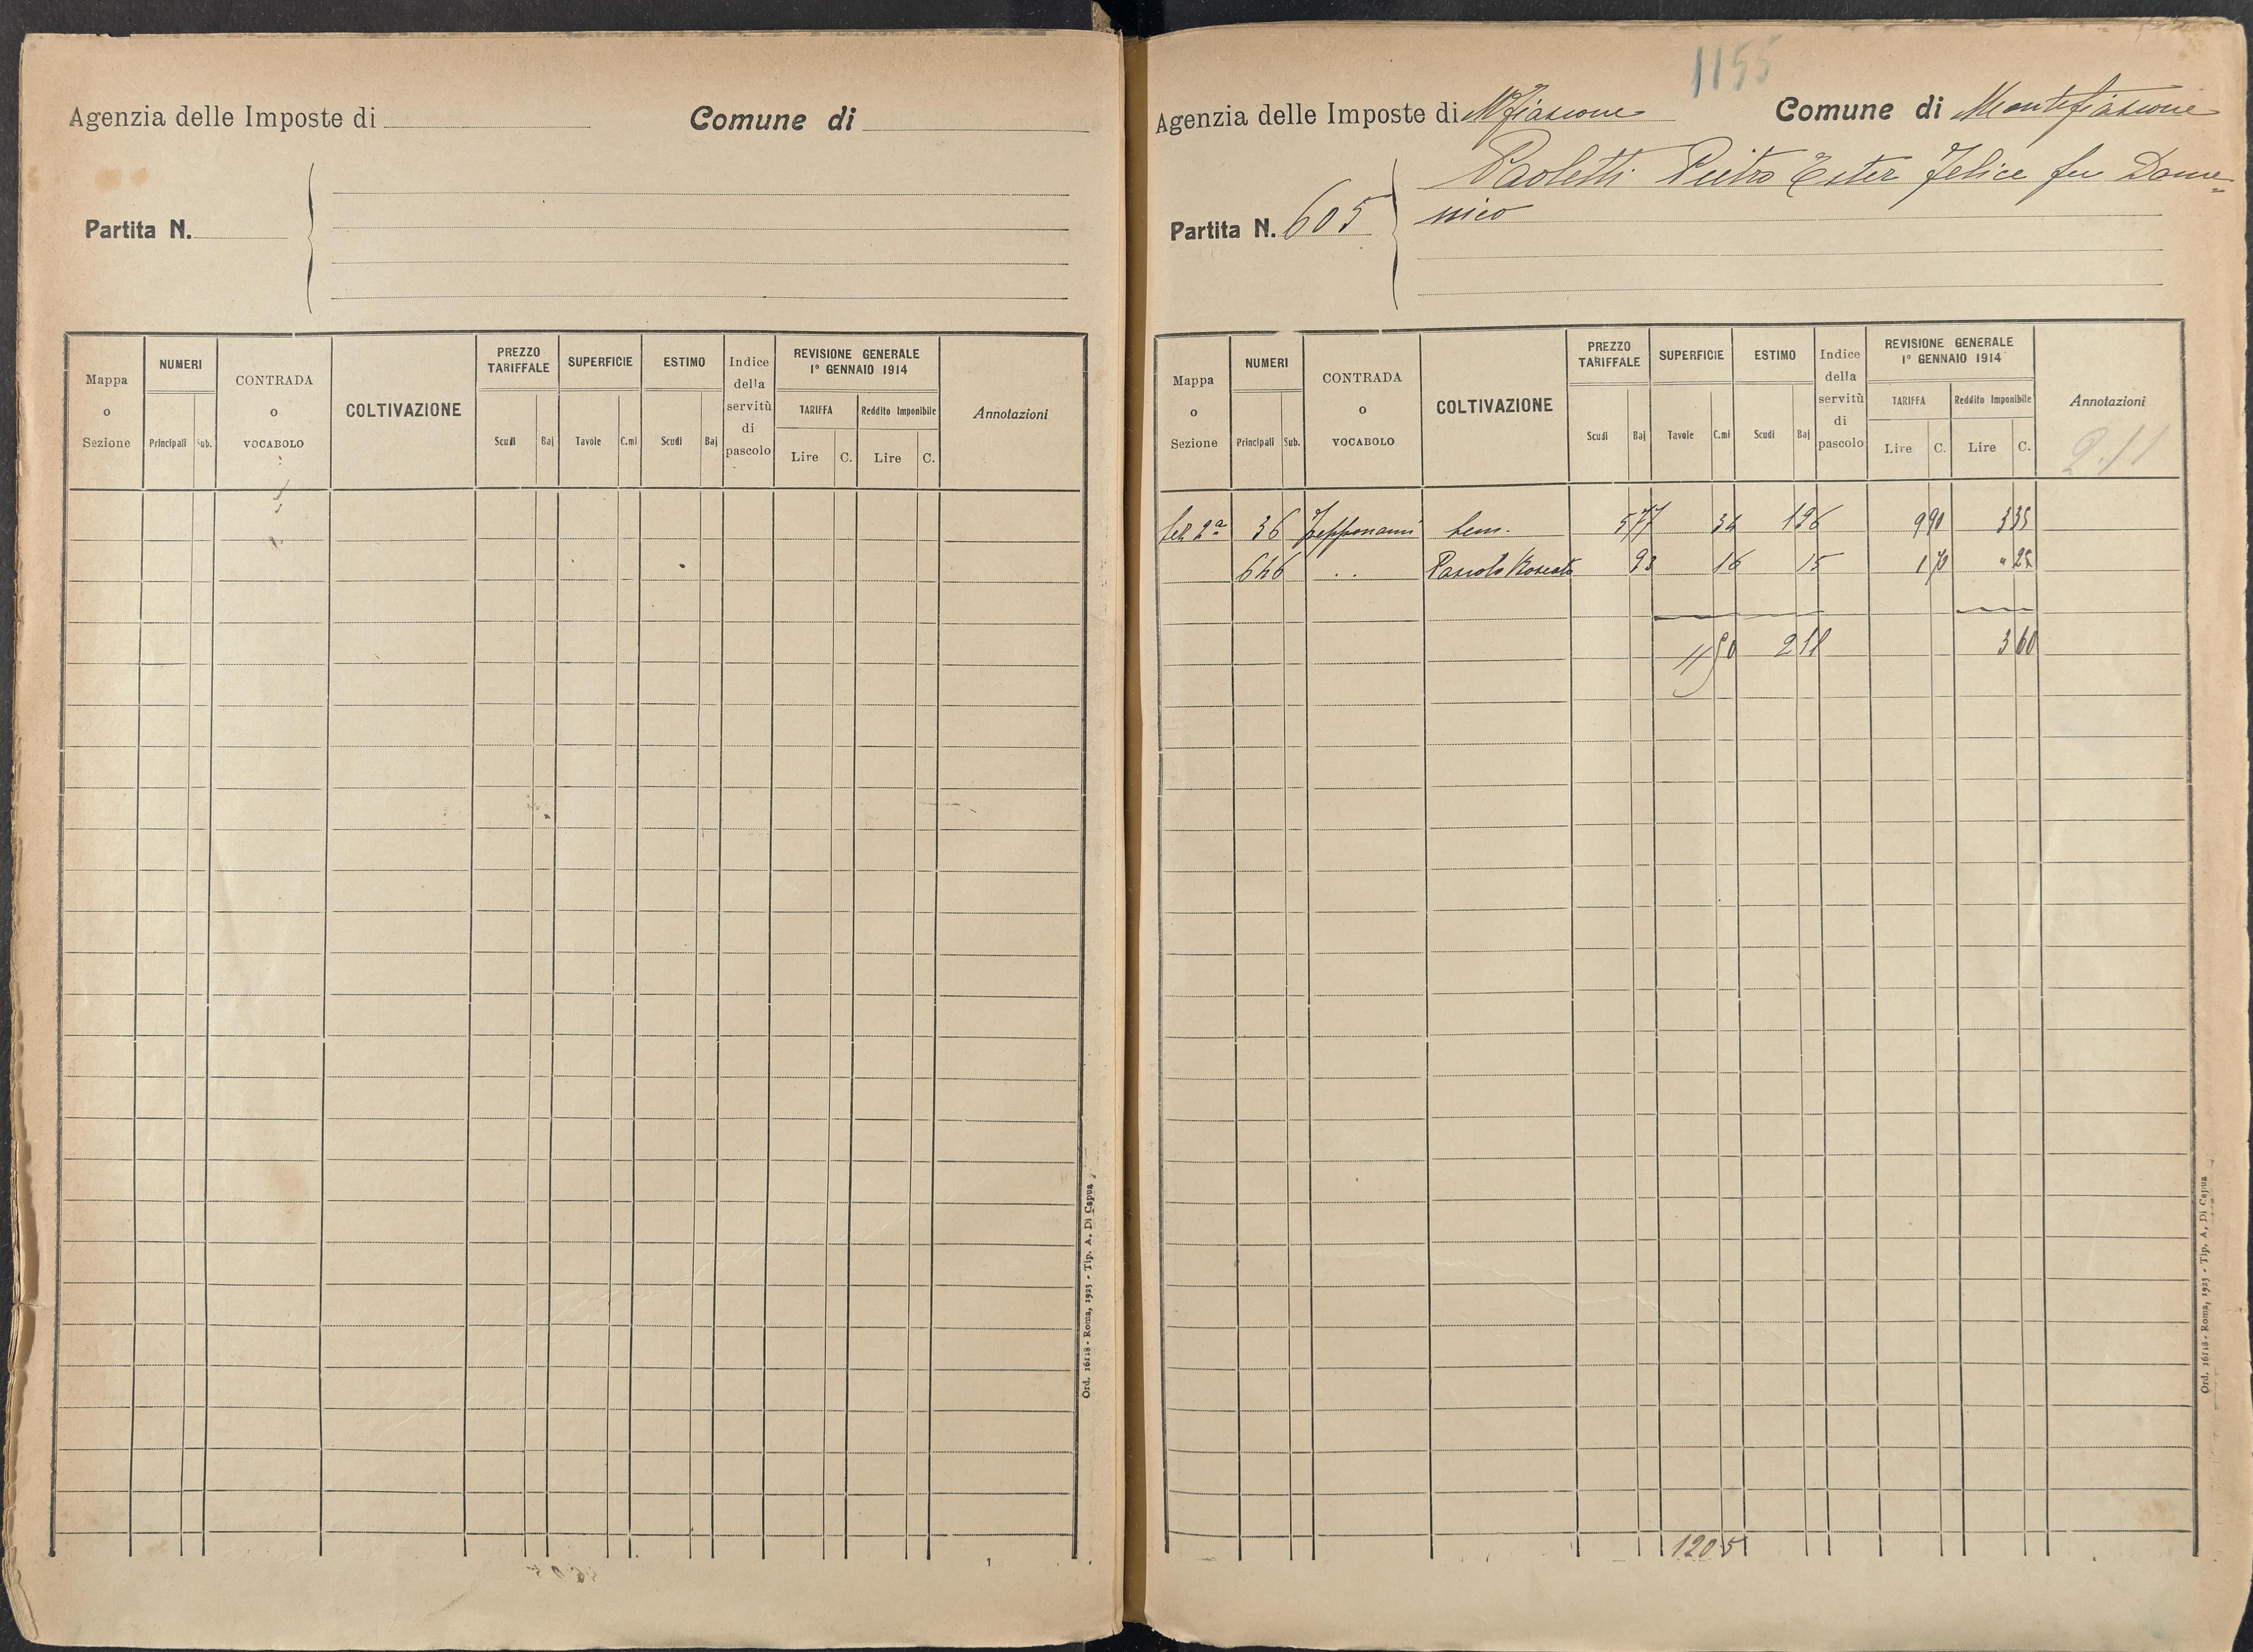 Agenzia delle Imposte di
Comune di
Partita N.
Mappa o Sezione
NUMERI
Principali Sub.
CONTRADA o VOCABOLO
COLTIVAZIONE
PREZZO TARIFFALE
Scudi Baj
SUPERFICIE
Tavole C.mi
ESTIMO
Scudi Baj
Indice della servitù di pascolo
REVISIONE GENERALE
1° GENNAIO 1914
TARIFFA
Lire C.
Reddito Imponibile
Lire C.
Annotazioni
Ord. 16118 - Roma, 1923 - Tip. A. Di Capua
1155
Agenzia delle Imposte di Mfiascone
Comune di Montefiascone
Paoletti Pietro Ester Felice fu Dome=
nico
Partita N. 605
Mappa o Sezione
NUMERI
Principali Sub.
CONTRADA o VOCABOLO
COLTIVAZIONE
PREZZO TARIFFALE
Scudi Baj
SUPERFICIE
Tavole C.mi
ESTIMO
Scudi Baj
Indice della servitù di pascolo
REVISIONE GENERALE
1° GENNAIO 1914
TARIFFA
Lire C.
Reddito Imponibile
Lire C.
Annotazioni
2ª 36 Zepponami Sem. 5 77 34 1 96 9 90 3 35
646 " 93 16 15 1 70 " 25
50 2 11 3 60
1205
Ord. 16118 - Roma, 1923 - Tip. A. Di Capua